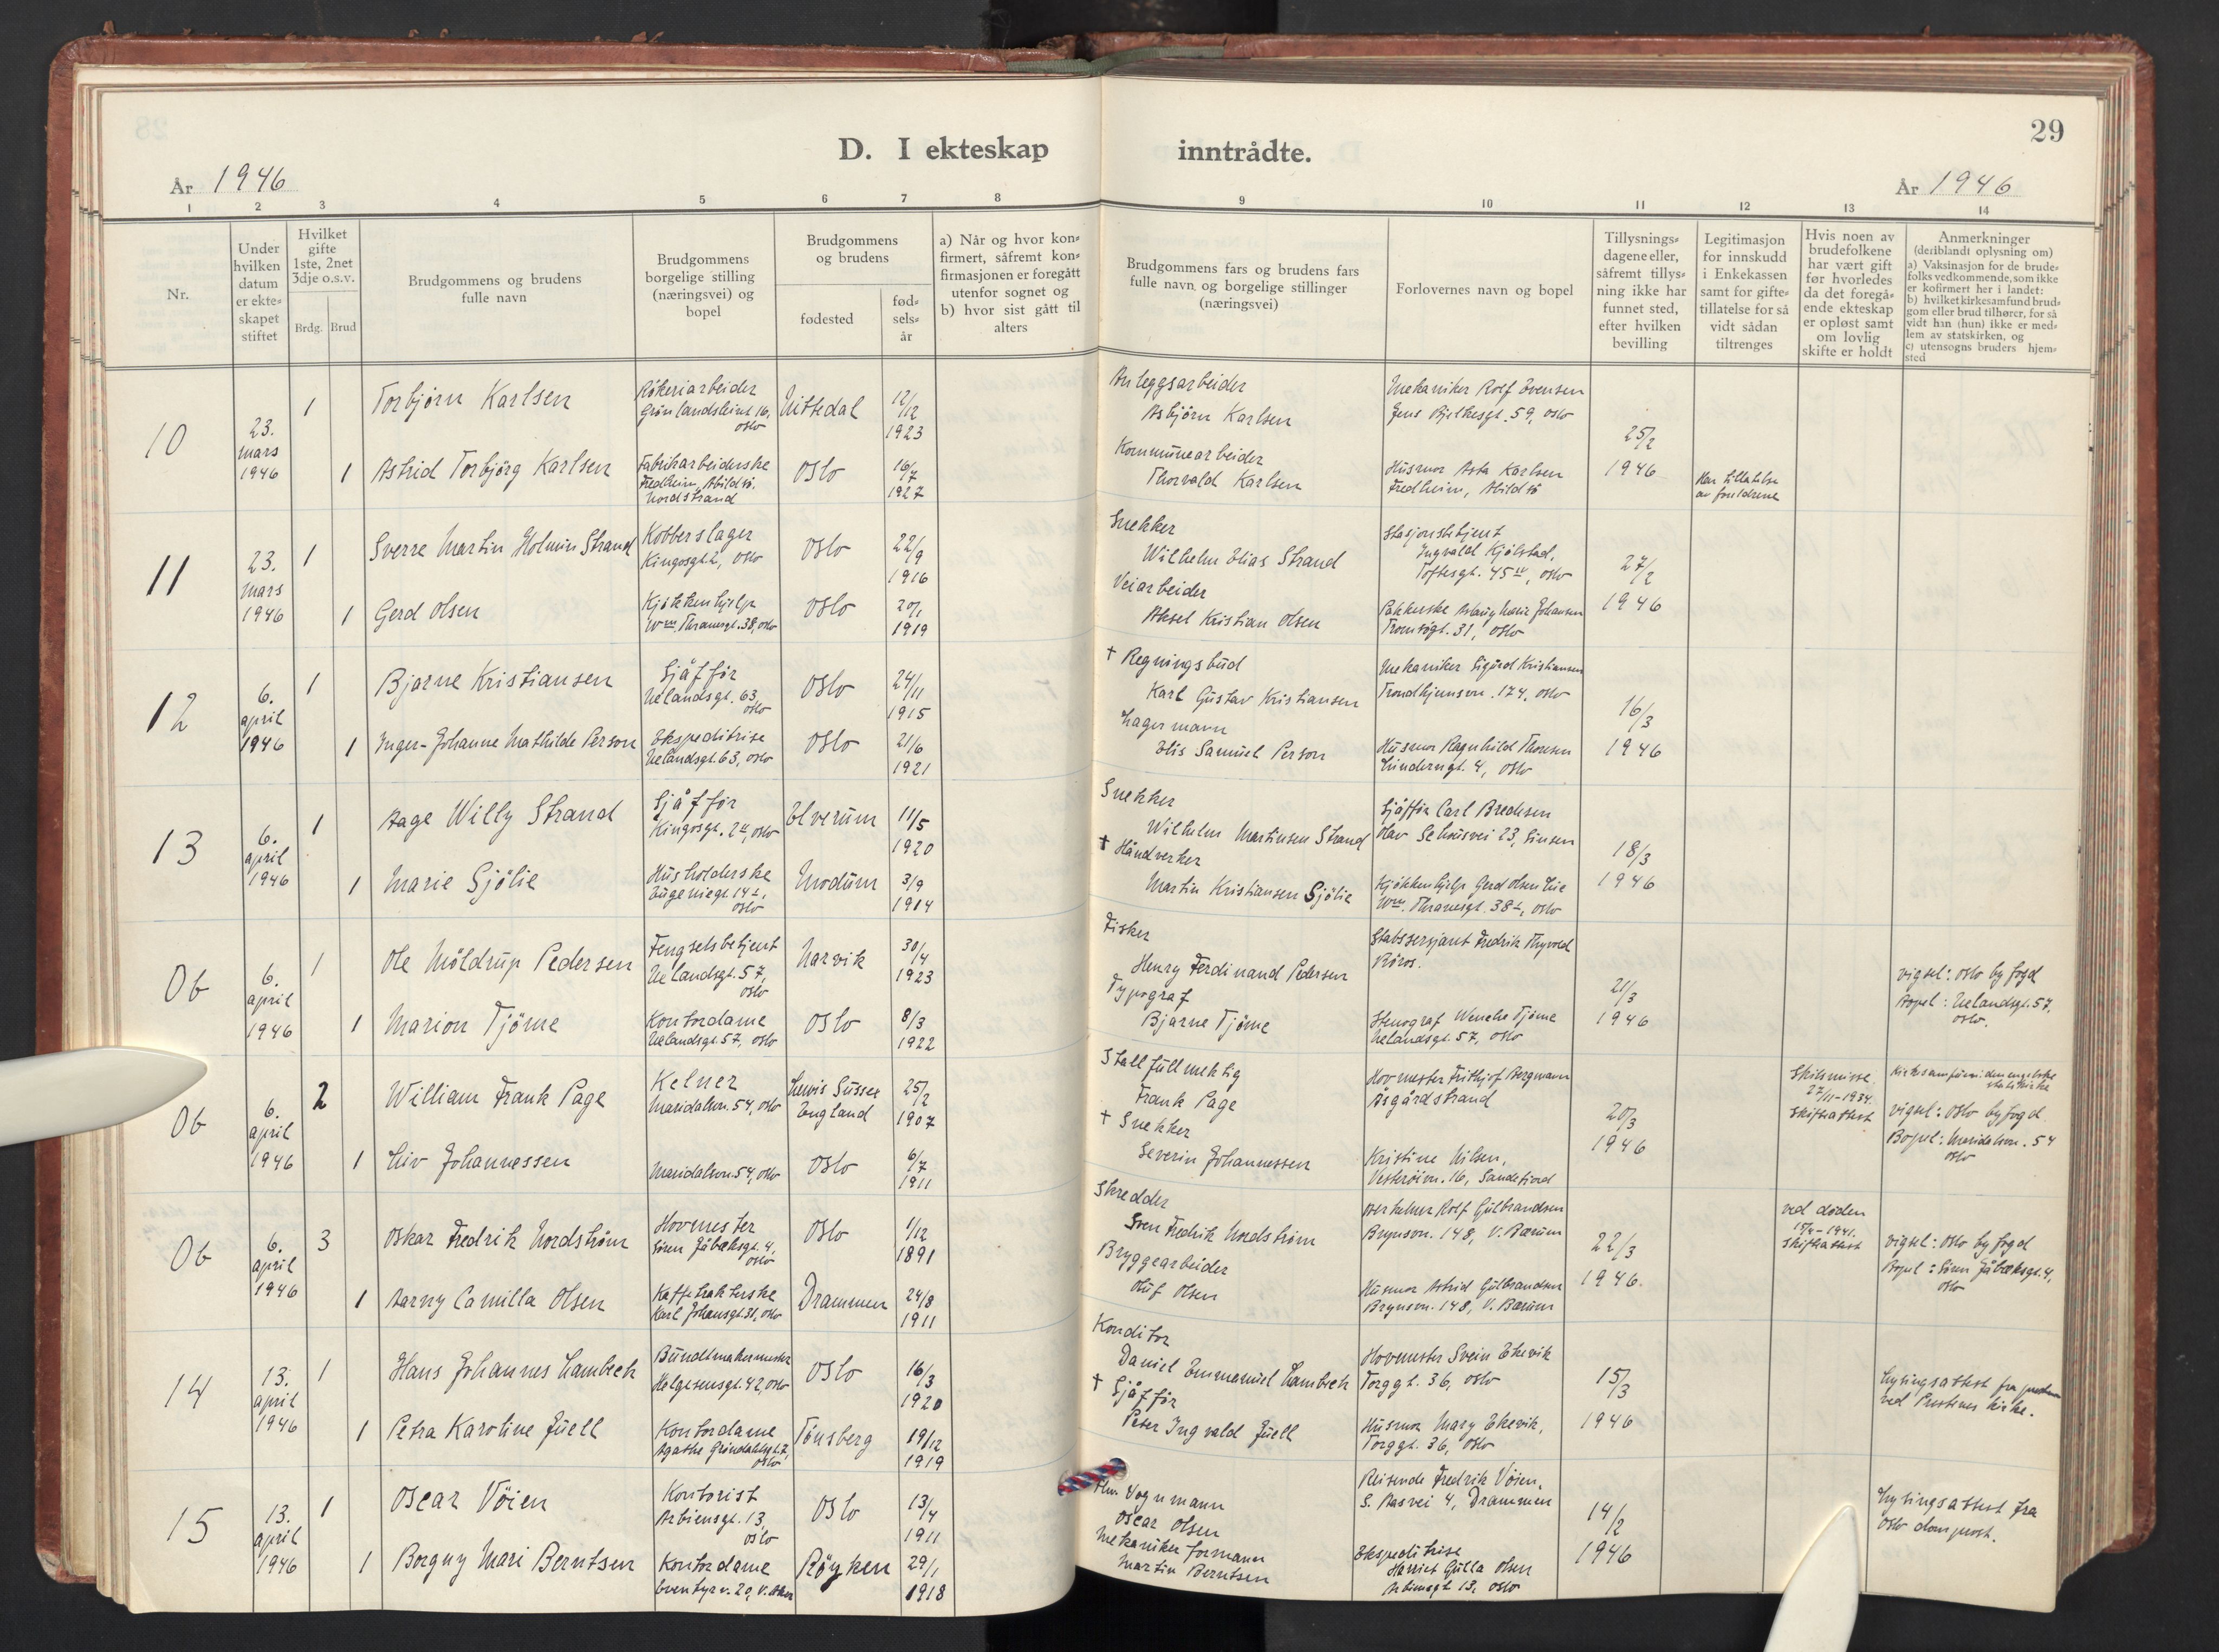 D. I ekteskap inntrådte.
29
År 1946
År 1946
1 2 3 4 5 6 7 8 9 10 11 12 13 14
Nr.
Under hvilken datum er ekte-skapet stiftet
Hvilket gifte 1ste, 2net 3dje o.s.v.
Brdg. Brud
Brudgommens og brudens fulle navn
Brudgommens borgelige stilling (næringsvei) og bopel
Brudgommens og brudens
fødested
fød-sels-år
a) Når og hvor kon-firmert, såfremt kon-firmasjonen er foregått utenfor sognet og b) hvor sist gått til alters
Brudgommens fars og brudens fars fulle navn, og borgelige stillinger (næringsvei)
Forlovernes navn og bopel
Tillysnings-dagene eller, såfremt tillys-ning ikke har funnet sted, efter hvilken bevilling
Legitimasjon for innskudd i Enkekassen samt for gifte-tillatelse for så vidt sådan tiltrenges
Hvis noen av brudefolkene har vært gift før hvorledes da det foregå-ende ekteskap er opløst samt om lovlig skifte er holdt
Anmerkninger (deriblandt oplysning om) a) Vaksinasjon for de brude-folks vedkommende, som ikke er kofirmert her i landet: b) hvilket kirkesamfund brud-gom eller brud tilhører, for så vidt han (hun) ikke er med-lem av statskirken, og c) utensogns bruders hjem-sted
10
23. mars 1946
1 Torbjørn Karlsen
Røkeriarbeider Grønlandsleiret 16, Oslo
Nittedal
12/12 1923
Anleggsarbeider Asbjørn Karlsen
Mekaniker Rolf Evensen Jens Bjelkesgt. 59, Oslo
25/2 1946
1 Astrid Torbjørg Karlsen
Fabrikarbeiderske Fredheim, Abildsø. Nordstrand
Oslo
16/7 1927
Kommunearbeider Thorvald Karlsen
Husmor Asta Karlsen Fredheim, Abildsø
Har tillatelse av foreldrene
11
23. mars 1946
1 Sverre Martin Holmin Strand
Kobberslager Kingosgt. 2, Oslo
Oslo
22/9 1916
Snekker Wilhelm Elias Strand
Stasjonsbetjent Ingvald Kjølstad, Toftesgt. 45 IV, Oslo
27/2 1946
1 Gerd Olsen
Kjøkkenhjelp Wm. Thranesgt. 38, Oslo
Oslo
20/1 1919
Veiarbeider Aksel Kristian Olsen
Pakkerske Aslaug Marie Johansen Tromsøgt. 31, Oslo
12
6. april 1946
1 Bjarne Kristiansen
Sjåffør Uelandsgt. 63, Oslo
Oslo
24/11 1915
† Regningsbud Karl Gustav Kristiansen
Mekaniker Sigurd Kristiansen Trondhjemsvn. 174, Oslo
16/3 1946
1 Inger-Johanne Mathilde Person
Ekspeditrise Uelandsgt. 63, Oslo
Oslo
21/6 1921
Lagermann Elis Samuel Person
Husmor Ragnhild Thoresen Linderngt. 4, Oslo
13
6. april 1946
1 Aage Willy Strand
Sjåffør Kingosgt. 2 II, Oslo
Elverum
11/5 1920
Snekker Wilhelm Martinsen Strand
Sjåffør Carl Bredesen Olav Schousvei 23, Sinsen
18/3 1946
1 Marie Sjølie
Husholderske Eugeniegt. 14 I, Oslo
Modum
3/9 1914
† Håndverker Martin Kristiansen Sjølie
Kjøkkenhjelp Gerd Olsen Lie Wm. Thranesgt. 38 I, Oslo
Ob
6. april 1946
1 Ole Möldrup Pedersen
Fengselsbetjent Uelandsgt. 57, Oslo
Narvik
30/4 1923
Fisker Henry Ferdinand Pedersen
Stabssersjant Fredrik Thyvold Röros.
21/3 1946
vigsel: Oslo byfogd
Bopel: Uelandsgt. 57, Oslo.
1 Marion Tjöme
Kontordame Uelandsgt. 57, Oslo
Oslo
8/3 1922
Typograf Bjarne Tjöme
Stenograf Wenche Tjöme Uelandsgt. 57, Oslo
Ob
6. april 1946
2 William Frank Page
Kelner Maridalsvn. 54, Oslo
Lewis Sussex England
25/2 1907
Stallfullmektig Frank Page
Hovmester Frithjof Bergmann Åsgårdstrand
20/3 1946
Skilsmisse 27/11-1934. skifteattest
Kirkesamfunn: den engelske statskirke
vigsel: Oslo byfogd.
Bopel: Maridalsvn. 54 Oslo
1 Liv Johannessen
Maridalsvn. 54, Oslo
Oslo
6/7 1911
† Snekker Severin Johannessen
Kristine Nilsen, Vesterøivn. 16, Sandefjord
Ob
6. april 1946
3 Oskar Fredrik Nordström
Hovmester Sören Jåbæksgt. 4, Oslo
Oslo
1/12 1891
Skredder Sven Fredrik Nordström
Overkelner Rolf Gulbrandsen Brynsvn. 148, V. Bærum
22/3 1946.
ved døden 15/4-1941. skifteattest
vigsel: Oslo byfogd
Bopel: Sören Jåbæksgt. 4, Oslo
1 Aarny Camilla Olsen
Kaffetrakterske Karl Johansgt. 31, Oslo
Drammen
24/8 1911
Bryggearbeider Oluf Olsen
Husmor Astrid Gulbrandsen Brynsvn. 148, V. Bærum
14
13. april 1946
1 Hans Johannes Lambech
Bundtmakermester Helgesensgt. 42, Oslo
Oslo
16/3 1920
Konditor Daniel Emmanuel Lambech
Hovmester Svein Ekevik Torggt. 36, Oslo
15/3 1946
Lysingsattest fra
ved Paulus kirke.
1 Petra Karoline Juell
Kontordame Agathe Grøndahlsgt. 7, Oslo
Tönsberg
19/12 1919
† Sjåffør Peter Ingvald Juell
Husmor Mary Ekevik, Torggt. 36, Oslo
15
13. april 1946
1 Oscar Vöien
Kontorist Arbiensgt. 13, Oslo
Oslo
13/4 1911
Vognmann Oscar Olsen
Reisende Fredrik Vöien, S. Aasvei 4, Drammen
14/2 1946
Lysingsattest fra Oslo domprost.
1 Borgny Mari Berntsen
Kontordame Eventyrv. 29, V. Aker
Röyken
29/1 1918
Mekaniker formann Martin Berntsen
Ekspeditrise Harriet Gulla Olsen Arbiensgt 13, Oslo